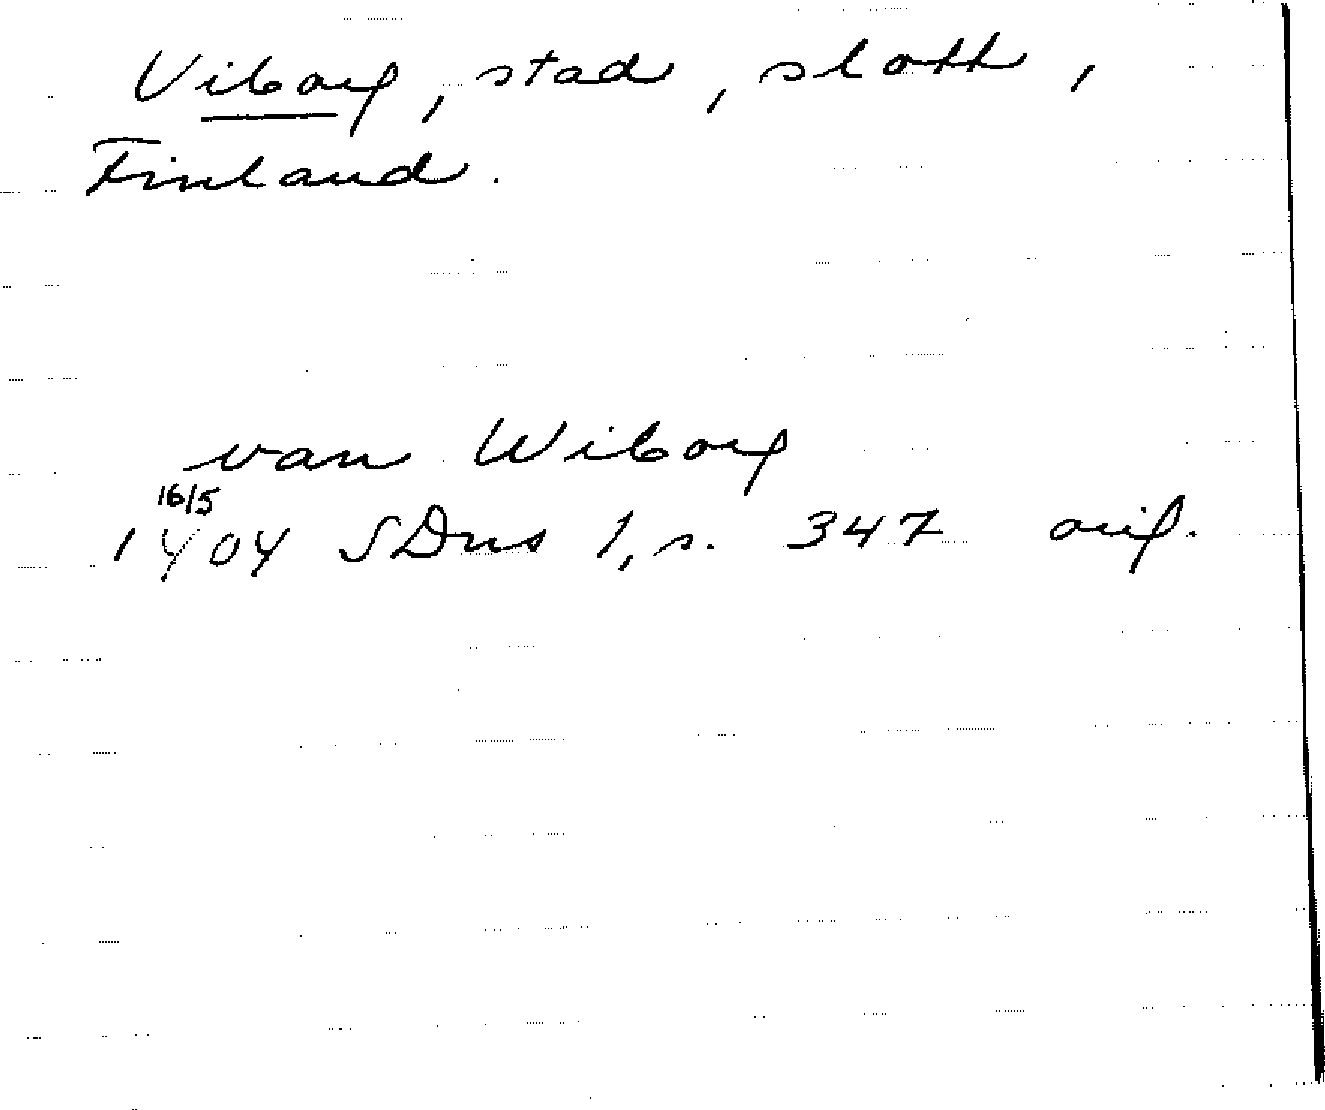 Viborg, stad, slott,
Finland.
van Wiborg
16/5
1404 SDns 1, s. 347 orig.